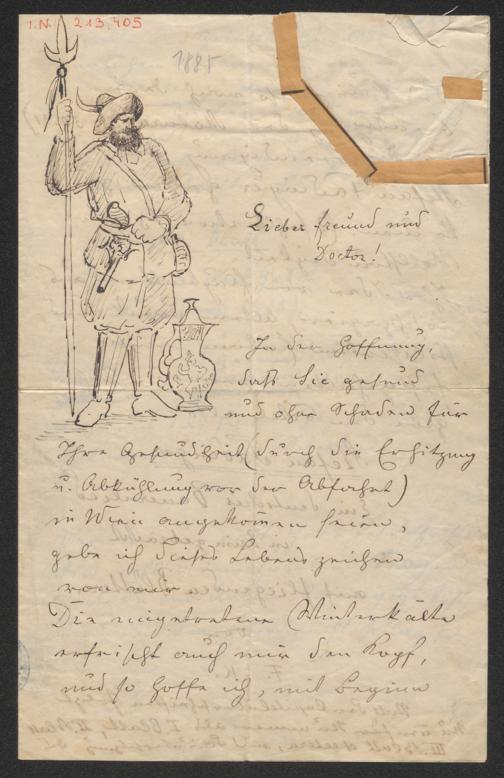 I.N. 213.405
1885
Lieber Freund und
Doctor!
In der Hoffnung,
daß Sie gesund
und ohne Schaden für
Ihre Gesundheit (durch die Erhitzung
u. Abkühlung vor der Abfahrt)
in Wien angekomen seien,
gebe ich dieses Lebenszeichen
von mir
Die eingetretene Winterkälte
erfrischt auch mir den Kopf,
und so hoffe ich, mit Beginn